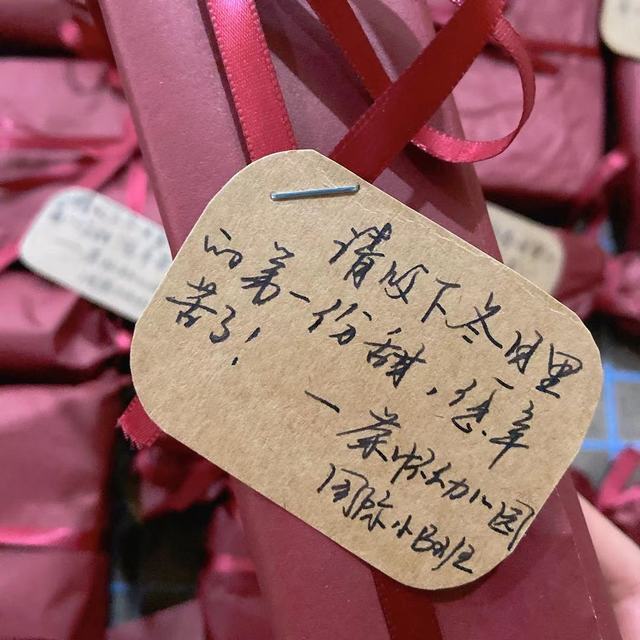 请收下冬日里
的第一份甜,您辛
苦了!
— 幼儿园
国际小B班